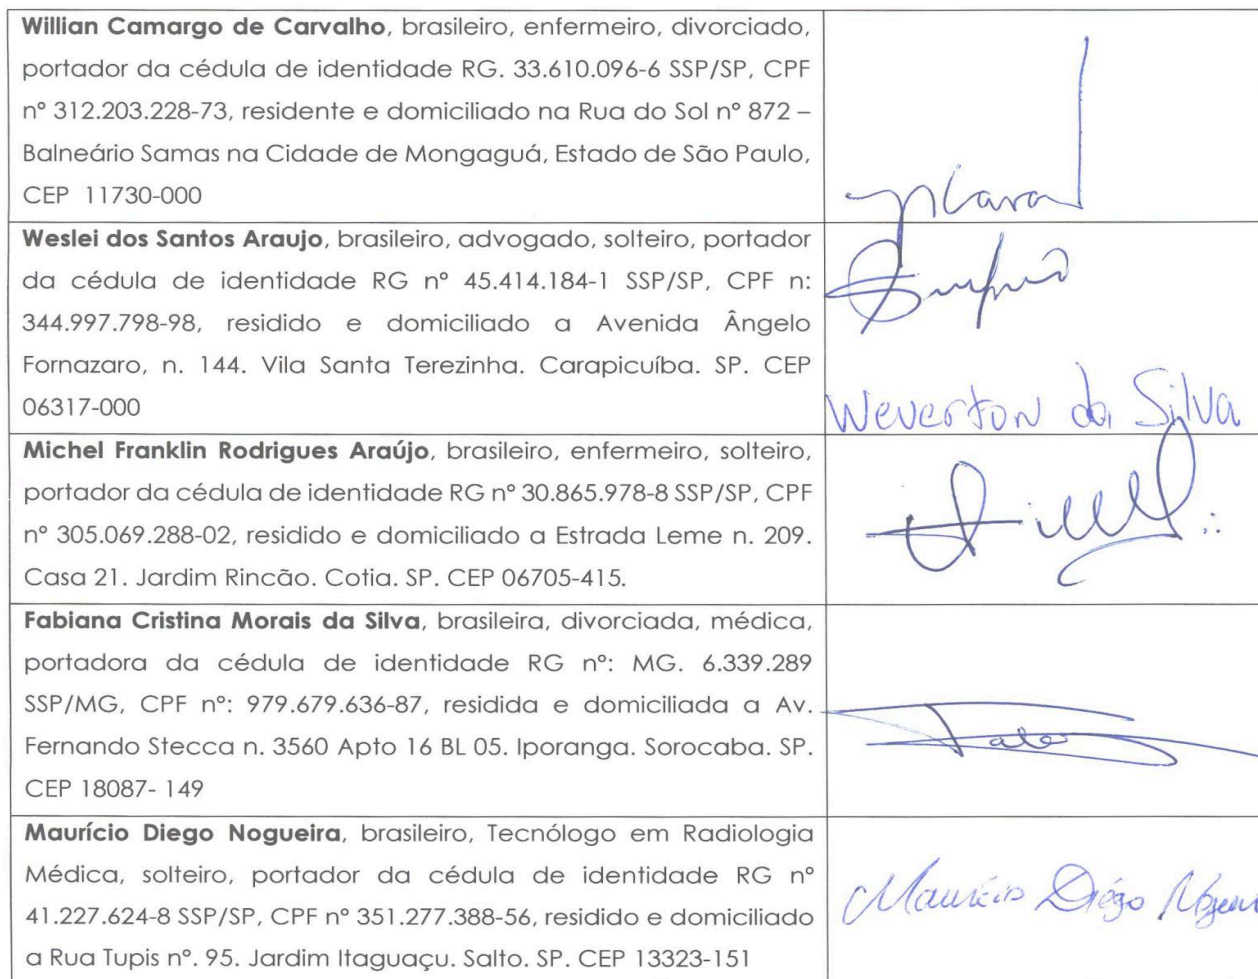 Willian Camargo de Carvalho, brasileiro, enfermeiro, divorciado,
portador da cédula de identidade RG. 33.610.096-6 SSP/SP, CPF
nº 312.203.228-73, residente e domiciliado na Rua do Sol nº 872 –
Balneário Samas na Cidade de Mongaguá, Estado de São Paulo,
CEP 11730-000
Weslei dos Santos Araujo, brasileiro, advogado, solteiro, portador
da cédula de identidade RG nº 45.414.184-1 SSP/SP, CPF n:
344.997.798-98, residido e domiciliado a Avenida Ângelo
Fornazaro, n. 144. Vila Santa Terezinha. Carapicuíba. SP. CEP
06317-000
Weverton da Silva
Michel Franklin Rodrigues Araújo, brasileiro, enfermeiro, solteiro,
portador da cédula de identidade RG nº 30.865.978-8 SSP/SP, CPF
nº 305.069.288-02, residido e domiciliado a Estrada Leme n. 209.
Casa 21. Jardim Rincão. Cotia. SP. CEP 06705-415.
Fabiana Cristina Morais da Silva, brasileira, divorciada, médica,
portadora da cédula de identidade RG nº: MG. 6.339.289
SSP/MG, CPF nº: 979.679.636-87, residida e domiciliada a Av.
Fernando Stecca n. 3560 Apto 16 BL 05. Iporanga. Sorocaba. SP.
CEP 18087- 149
Maurício Diego Nogueira, brasileiro, Tecnólogo em Radiologia
Médica, solteiro, portador da cédula de identidade RG nº
41.227.624-8 SSP/SP, CPF nº 351.277.388-56, residido e domiciliado
a Rua Tupis nº. 95. Jardim Itaguaçu. Salto. SP. CEP 13323-151
Maurício Diégo